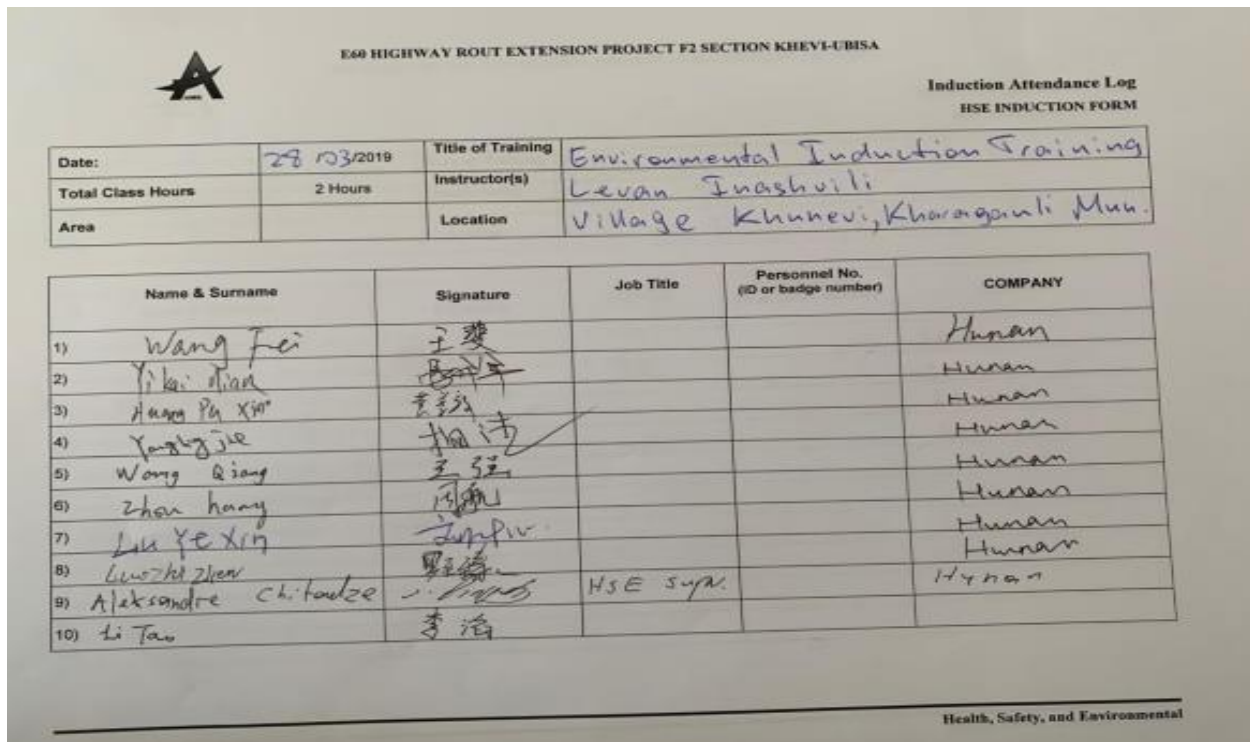 E60 HIGHWAY ROUT EXTENSION PROJECT F2 SECTION KHEVI-UBISA
Induction Attendance Log
HSE INDUCTION FORM
Date: 28/03/2019 Title of Training Environmental Induction Training
Total Class Hours 2 Hours Instructor(s) Levan Inashvili
Area Location Village Khunevi, Kharagauli Mun.
Name & Surname Signature Job Title Personnel No. (ID or badge number) COMPANY
1) Wang Fei 王斐 Hunan
2) Yikai Hunan
3) Huang Pu Xin Hunan
4) Hunan
5) Wang Qiang 王强 Hunan
6) Zhou hang 周航 Hunan
7) Liu Ye Xin Hunan
8) Luozhizhen Hunan
9) Aleksandre Chitadze HSE Supv. Hynan
10) Li Tao 李滔
Health, Safety, and Environmental